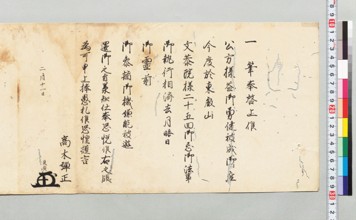 一筆奉啓上候
公方様益御勇健被成御座
今度於東叡山
文恭院様二十五回御忌御法事
御執行相済去月晦日
御霊前
御参詣御機嫌能被遊
還御之旨承知仕奉恐悦候右之段
為可申上捧愚札候恐惶謹言
二月十八日
高木
正